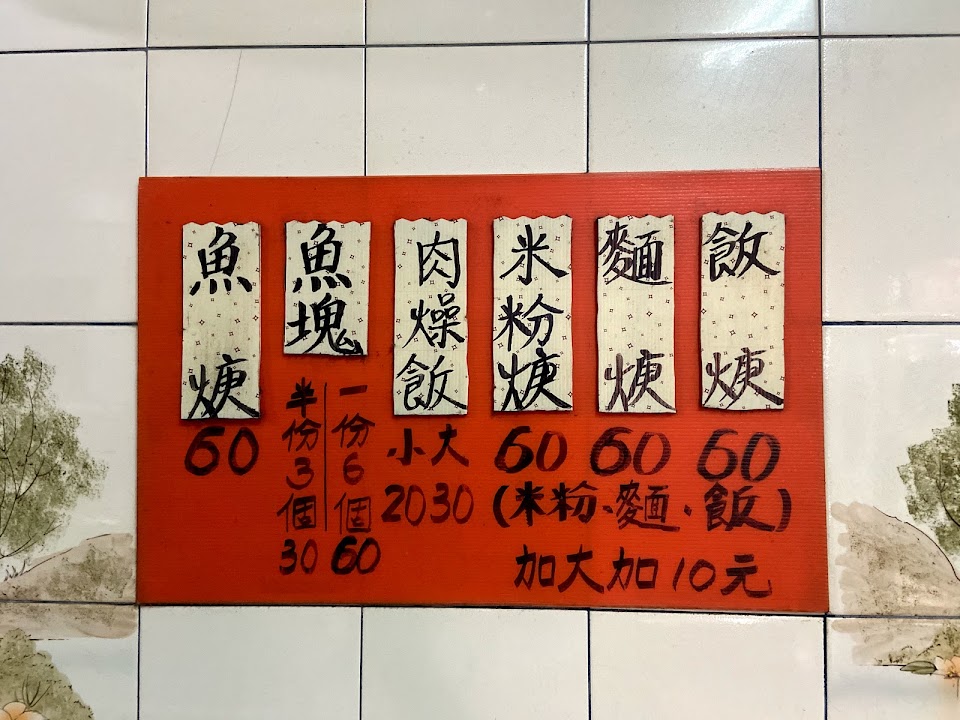 飯焿
60
麵焿
60
米粉焿
60
(米粉、麵、飯)
加大加10元
肉燥飯
小大
20 30
魚塊
一份6個
60
半份3個
30
魚焿
60